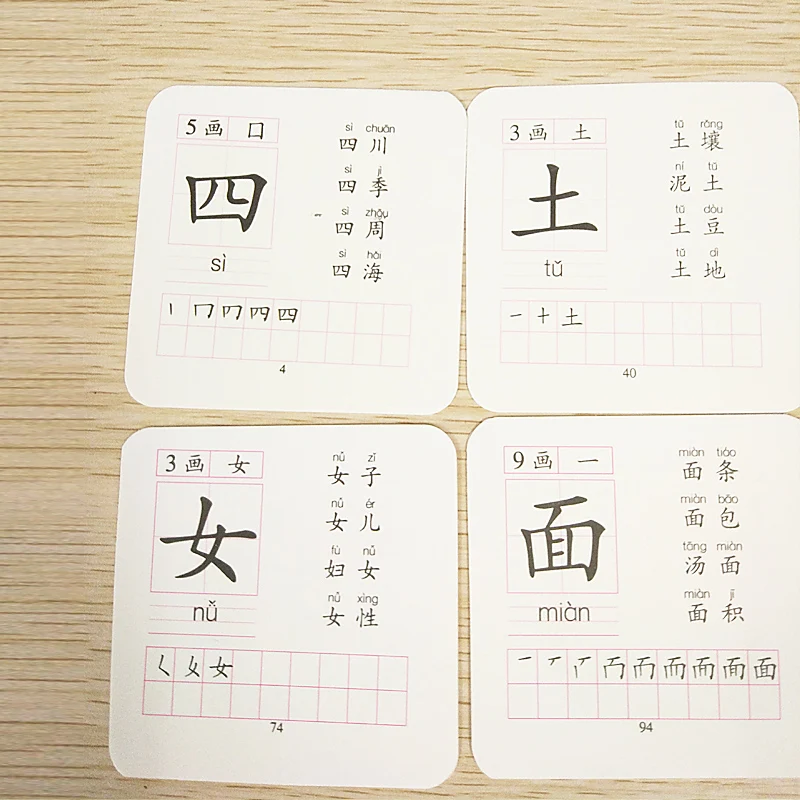 5画 口
四
sì
sì chuān
四川
sì jì
四季
sì zhōu
四周
sì hǎi
四海
丨 冂 四 四
4
3画 土
土
tǔ
tǔ rǎng
土壤
ní tǔ
泥土
tǔ dòu
土豆
tǔ dì
土地
一 十 土
40
3画 女
女
nǚ
nǚ zǐ
女子
nǚ ér
女儿
fù nǚ
妇女
nǚ xìng
女性
女
74
9画 一
面
miàn
miàn tiáo
面条
miàn bāo
面包
tāng miàn
汤面
miàn jī
面积
一 面
94